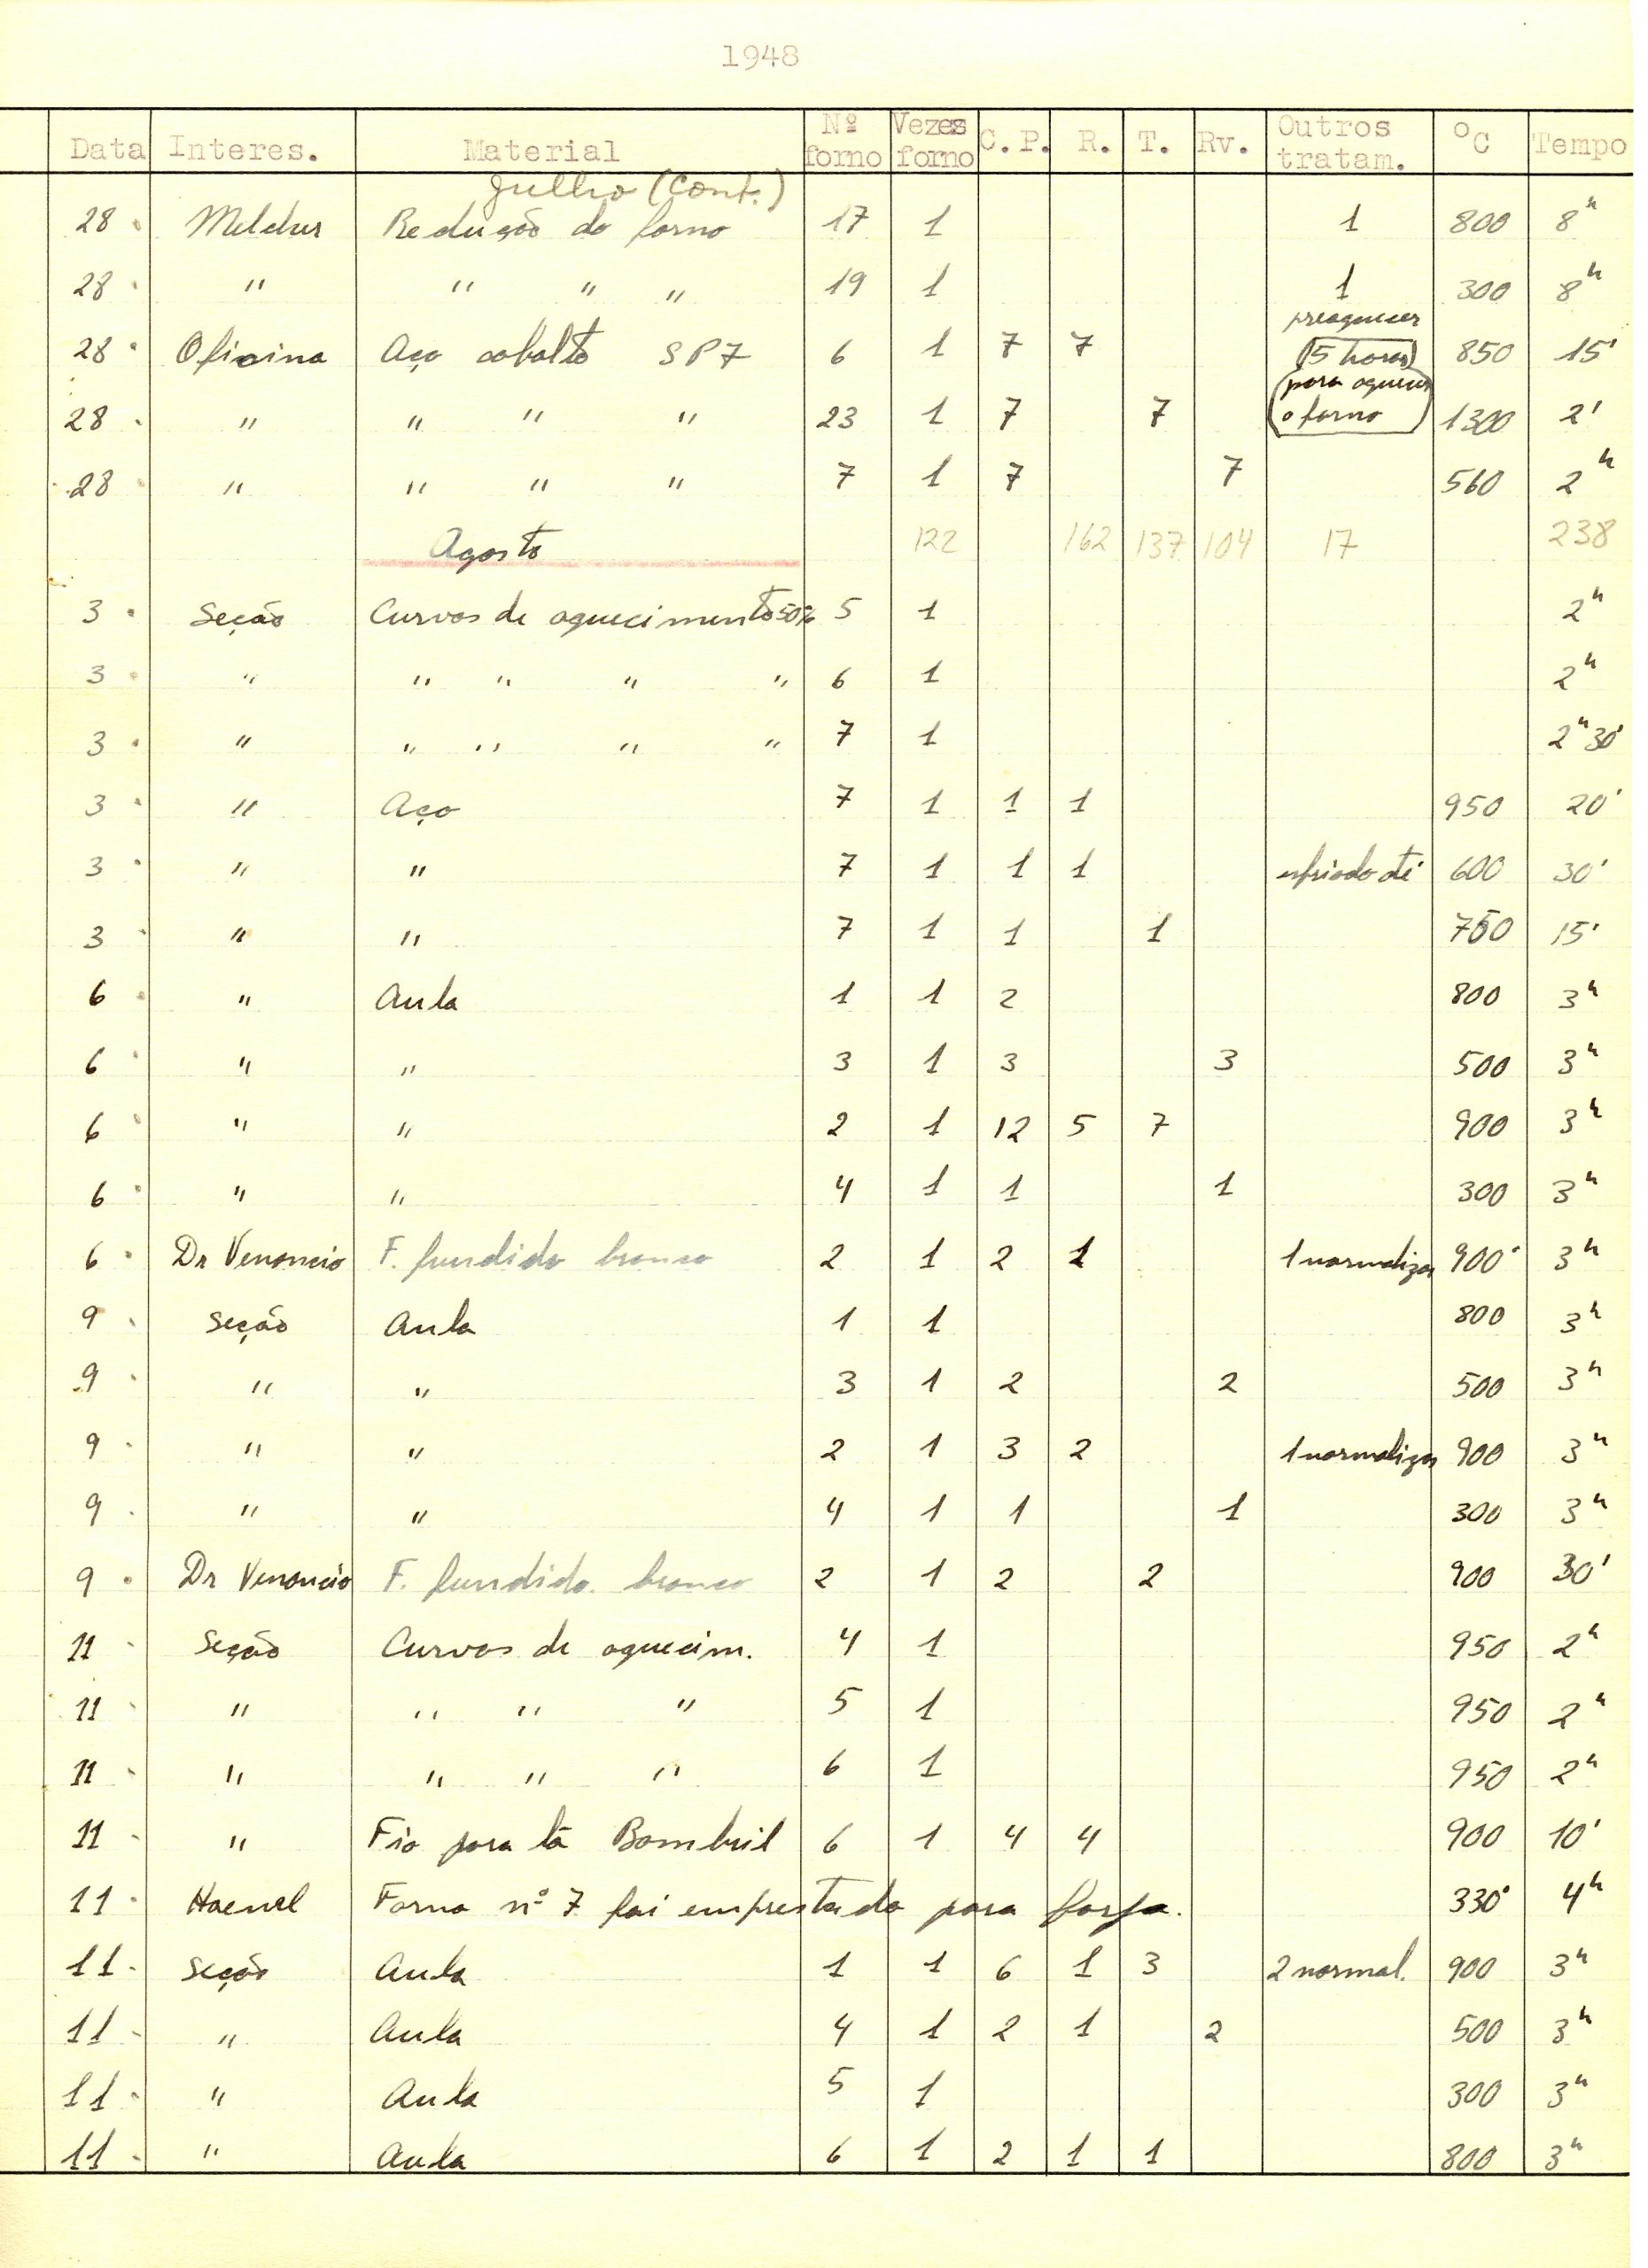 1948
Data Interes. Material Nº forno Vezes forno C.P. R. T. Rv. Outros tratam. °C Tempo
Julho (Cont.)
28 Melchur Redução do forno 17 1 1 800 8h
28 " " " " 19 1 1 300 8h
28 Oficina Aço cobalto SP7 6 1 7 7 preaquecer (5 horas) 850 15'
28 " " " " 23 1 7 7 (para aquecer o forno) 1300 2'
28 " " " " 7 1 7 7 560 2h
Agosto 122 162 137 104 17 238
3 Seção Curvas de aquecimento 50% 5 1 2h
3 " " " " " 6 1 2h
3 " " " " " 7 1 2h30'
3 " Aço 7 1 1 1 950 20'
3 " " 7 1 1 1 esfriado até 600 30'
3 " " 7 1 1 1 750 15'
6 " Aula 1 1 2 800 3h
6 " " 3 1 3 3 500 3h
6 " " 2 1 12 5 7 900 3h
6 " " 4 1 1 1 300 3h
6 Dr Venancio F. fundido branco 2 1 2 1 1 normalizar 900° 3h
9 Seção Aula 1 1 800 3h
9 " " 3 1 2 2 500 3h
9 " " 2 1 3 2 1 normalizar 900 3h
9 " " 4 1 1 1 300 3h
9 Dr Venancio F. fundido branco 2 1 2 2 900 30'
11 Seção Curvas de aquecim. 4 1 950 2h
11 " " " " 5 1 950 2h
11 " " " " 6 1 950 2h
11 " Fio para lã Bombril 6 1 4 4 900 10'
11 Haenel Forno nº 7 foi emprestado para forja. 330° 4h
11 Seção Aula 1 1 6 1 3 2 normal. 900 3h
11 " Aula 4 1 2 1 2 500 3h
11 " Aula 5 1 300 3h
11 " Aula 6 1 2 1 1 800 3h